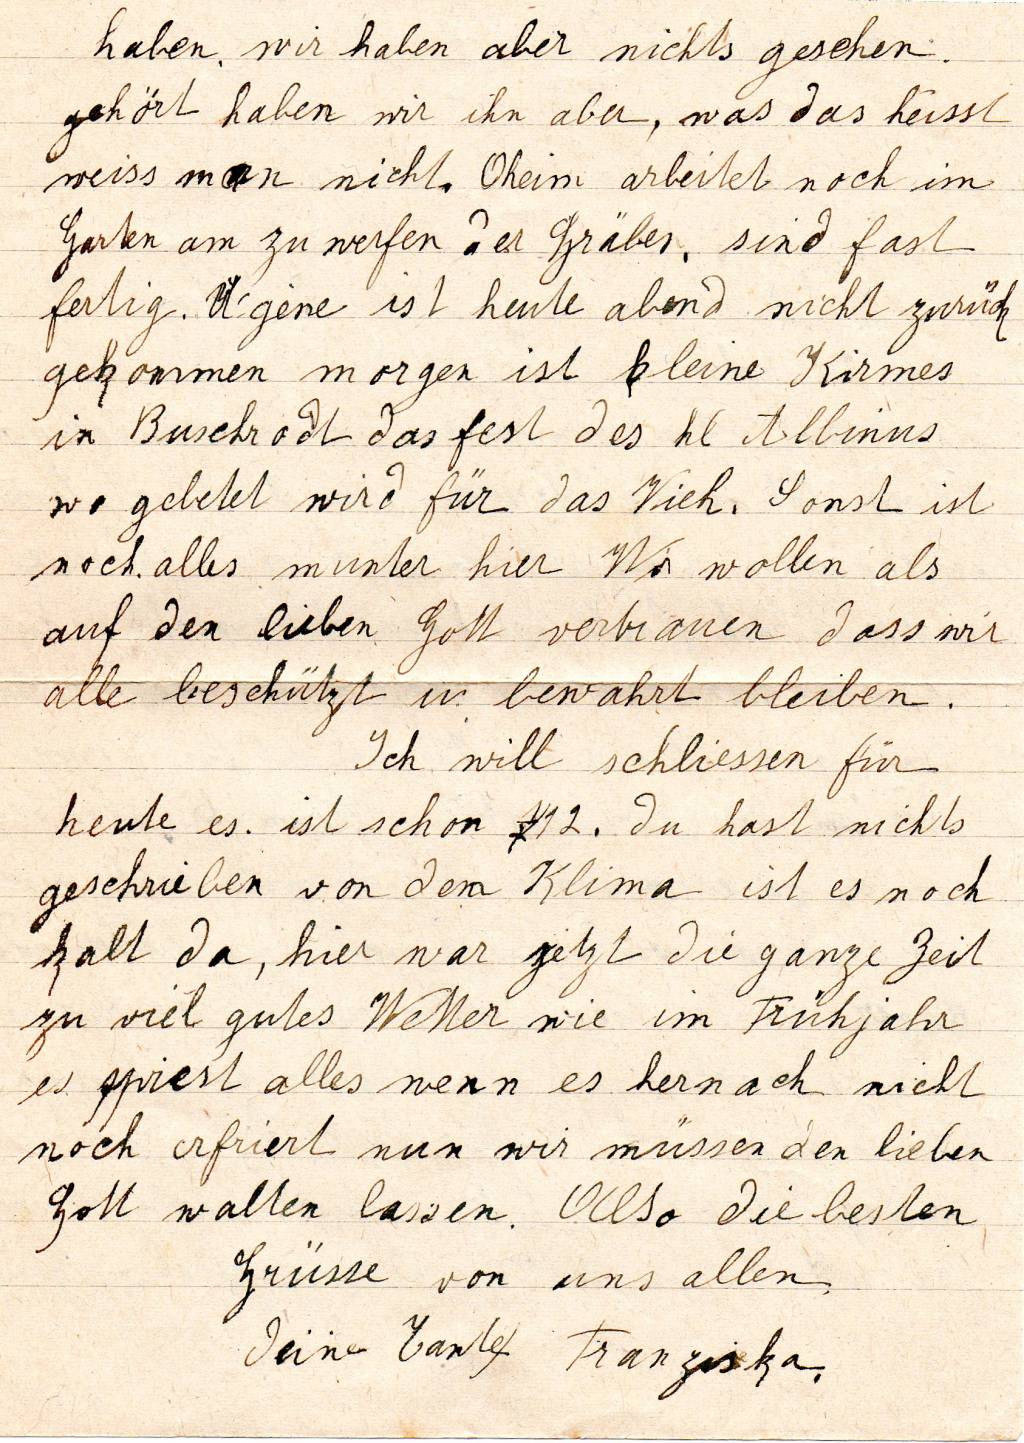 haben, wir haben aber nichts gesehen.
gehört haben wir ihn aber, was das heisst
weiss man nicht. Oheim arbeitet noch im
Garten am zu werfen der Gräben, sind fast
fertig. Ugène ist heute abend nicht zurück
gekommen morgen ist kleine Kirmes
in Buschrodt das fest des hl Albinus
wo gebetet wird für das Vieh. Sonst ist
noch alles munter hier Wir wollen als
auf den lieben Gott vertrauen dass wir
alle beschützt u. bewahrt bleiben.
Ich will schliessen für
heute es. ist schon 12. du hast nichts
geschrieben von dem Klima ist es noch
kalt da, hier war jetzt die ganze Zeit
zu viel gutes Wetter wie im Frühjahr
es spriest alles wenn es hernach nicht
noch erfriert nun wir müssen den lieben
Gott walten lassen. Also die besten
Grüsse von uns allen,
deine Tante Franziska.